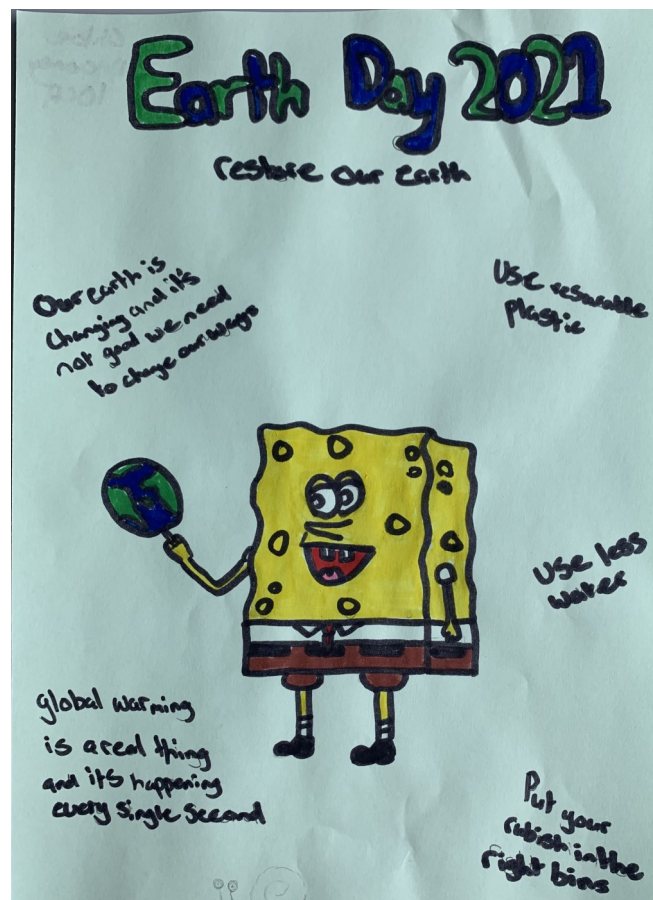 Earth Day 2021
restore our earth
Our earth is
changing and it's
not good we need
to change our ways
Use
plastic
Use less
water
global warming
is a real thing
and it's happening
every single second
Put your
rubish in the
right bins